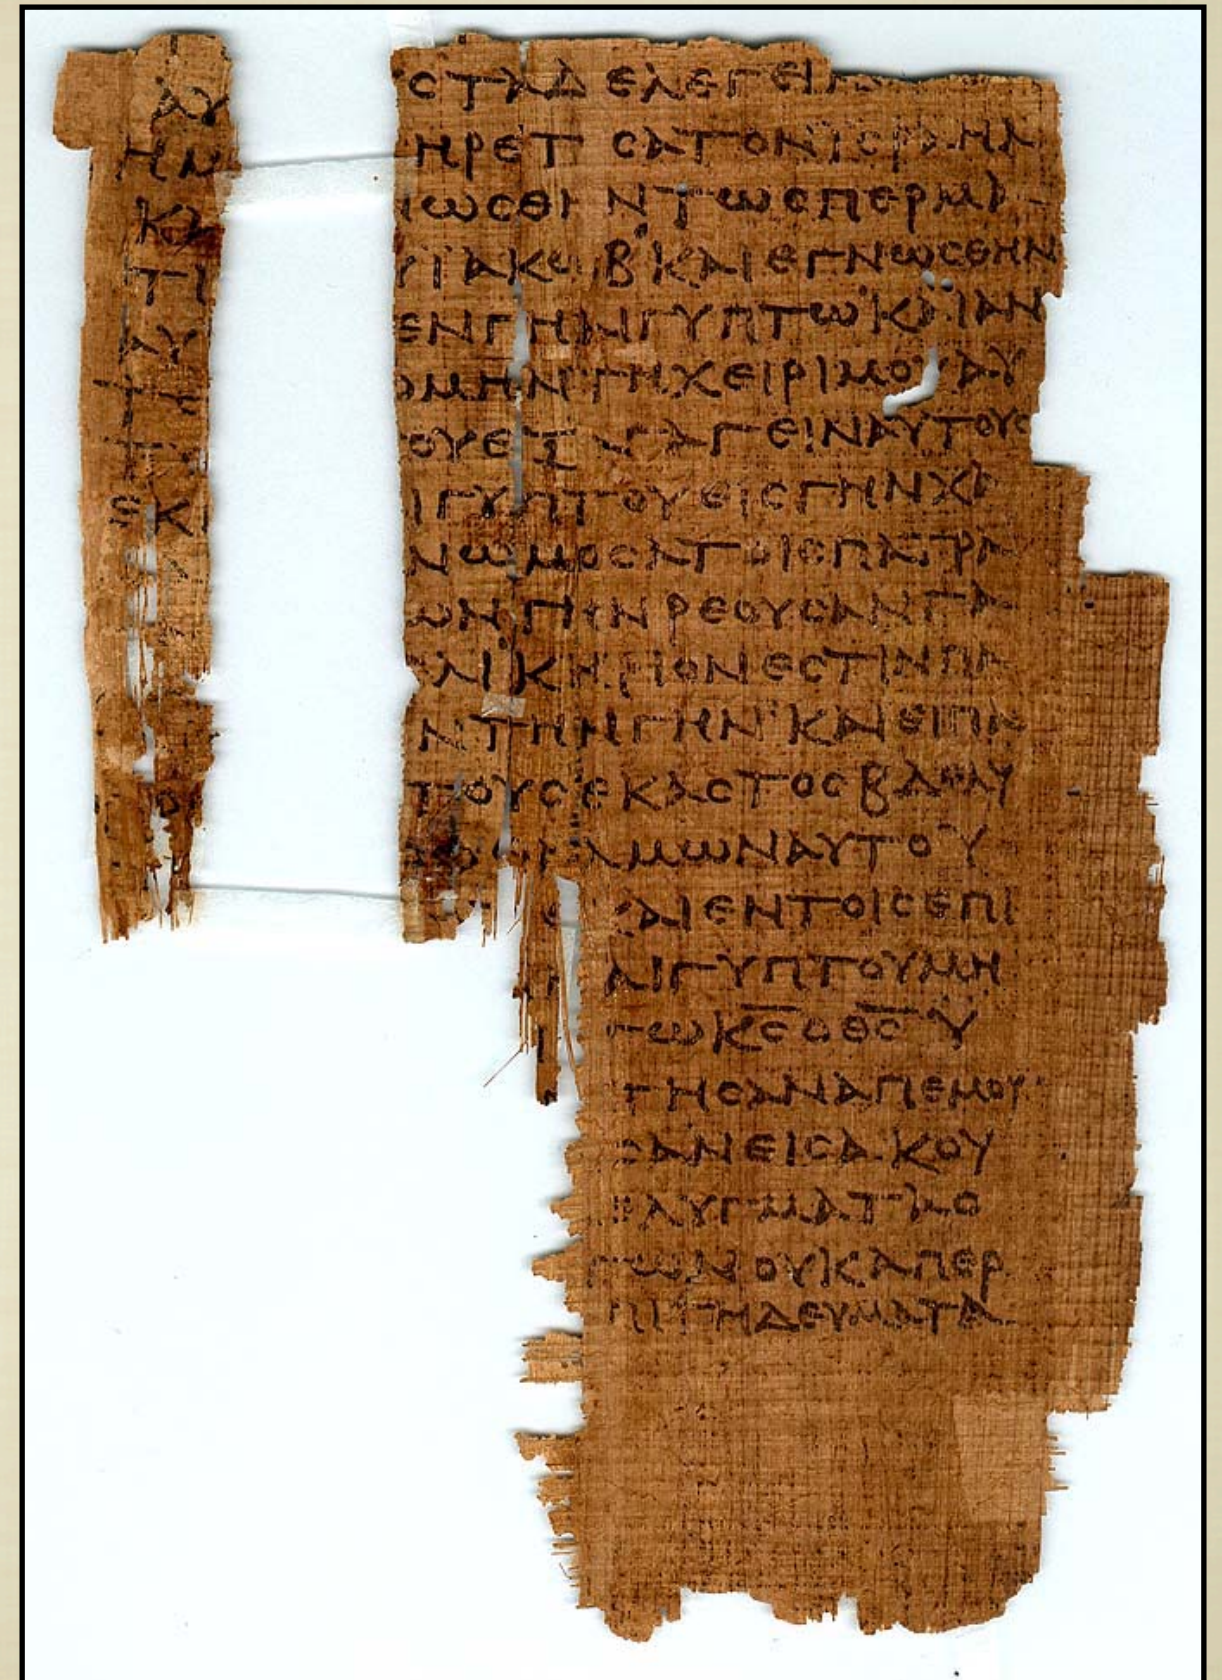 ΑΥ ϹΤΑΔΕΛΕΓΕΙ
ΗΜ ΗΡΕΤΙϹΑΤΟΝΙϹΡΑΗΛ
ΚΑ ΩϹΘΗΝΤΩϹΠΕΡΜΑ
ΤΙ ΥΪΑΚΩΒ ΚΑΙΕΓΝΩϹΘΗΝ
ΑΥ ΕΝΓΗΑΙΓΥΠΤΩ ΚΑΙΑΝ
ΤΕ ΟΜΗΝΤΗΧΕΙΡΙΜΟΥΑΥ
Τ ΟΥΕΞΑΓΑΓΕΙΝΑΥΤΟΥϹ
ΕΚ ΙΓΥΠΤΟΥΕΙϹΓΗΝΧΑ
ΝΩΜΟϹΑΤΟΙϹΠΑΤΡΑ
ΩΝΓΗΝΡΕΟΥϹΑΝΓΑ
ΛΙ ΚΗΡΙΟΝΕϹΤΙΝΠΑ
ΝΤΗΝΓΗΝ ΚΑΙΕΙΠΑ
ΤΟΥϹΕΚΑϹΤΟϹΒΔΕΛΥ
ΑΛΜΩΝΑΥΤΟΥ
ΚΑΙΕΝΤΟΙϹΕΠΙ
ΑΙΓΥΠΤΟΥΜΗ
ΓΩΚ̅Ϲ̅ΟΘ̅Ϲ̅Υ
ΤΗϹΑΝΑΠΕΜΟΥ
ϹΑΝΕΙϹΑΚΟΥ
ΕΛΥΓΜΑΤΑ
ΤΩΝΟΥΚΑΠΕΡ
ΠΙΤΗΔΕΥΜΑΤΑ